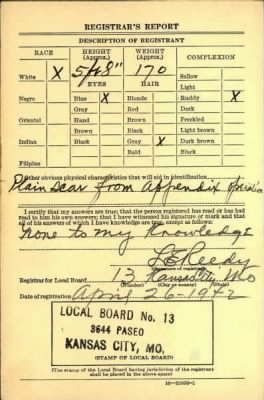 REGISTRAR'S REPORT
DESCRIPTION OF REGISTRANT
RACE HEIGHT (Approx.) WEIGHT (Approx.) COMPLEXION
5/48" 170
White X EYES HAIR Sallow
Light
Negro Blue X Blonde Ruddy X
Gray Red Dark
Oriental Hazel Brown Freckled
Brown Black Light brown
Indian Black Gray X Dark brown
Bald Black
Filipino
Other obvious physical characteristics that will aid in identification
Plain Scar from Appendix operation
I certify that my answers are true; that the person registered has read or has had
read to him his own answers; that I have witnessed his signature or mark and that
all of his answers of which I have knowledge are true, except as follows:
None to my knowledge
L E Reedy
(Signature of registrar)
Registrar for Local Board 13 Kansas City Mo
(Number) (City or county) (State)
Date of registration April 26-1942
LOCAL BOARD No. 13
3644 PASEO
KANSAS CITY, MO.
(STAMP OF LOCAL BOARD)
(The stamp of the Local Board having jurisdiction of the registrant
shall be placed in the above space)
16—21630-1